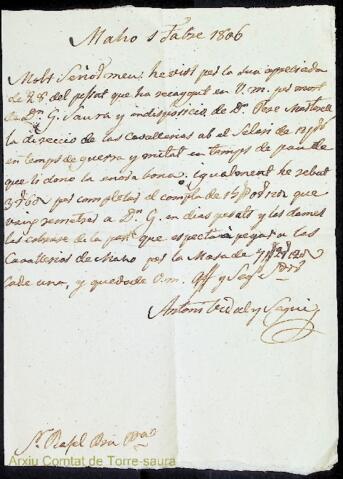 Maho 1 Fabre 1806
Molt Señor meu: he vist per la sua apreciada
de 28 del passat que ha recaygut en V.m. per mort
de Dn G. Saura y indisposicio de Dn Pere Martorell
la direccio de las Cavallerias ab el Salari de
en temps de guerra y mitat en temps de pau de
que li dono la enorabona: igualment he rebut
per completar el compte de que
vaix remetrer a Dn G. en dias passats y les demes
las cobrare de la part que especta à pagar a las
Cavallerias de Maho per la Masa de
Cade una, y queda de V.m.
Antoni Vidal y Segui
Sr. Rafel
Arxiu Comtat de Torre-saura